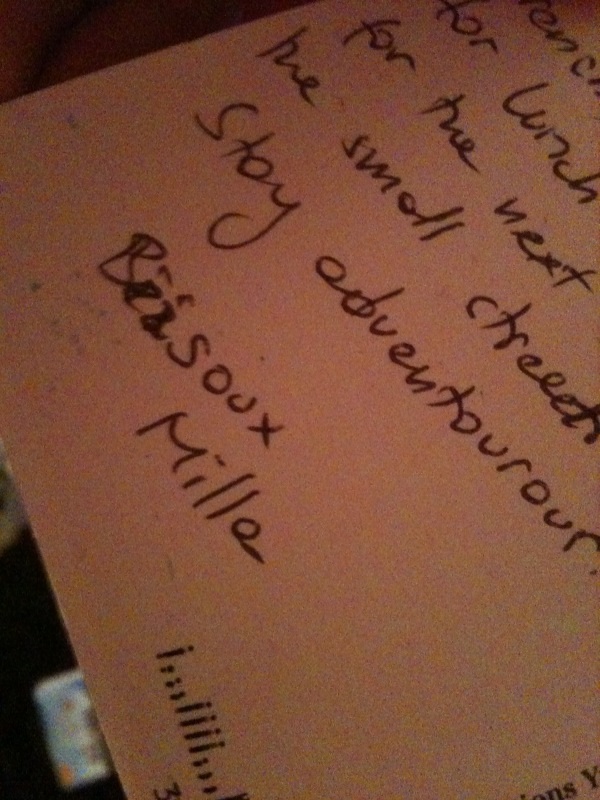 for lunch
for the next
the small streets
Stay adventourour.
Biisoux
Milla
ions Y